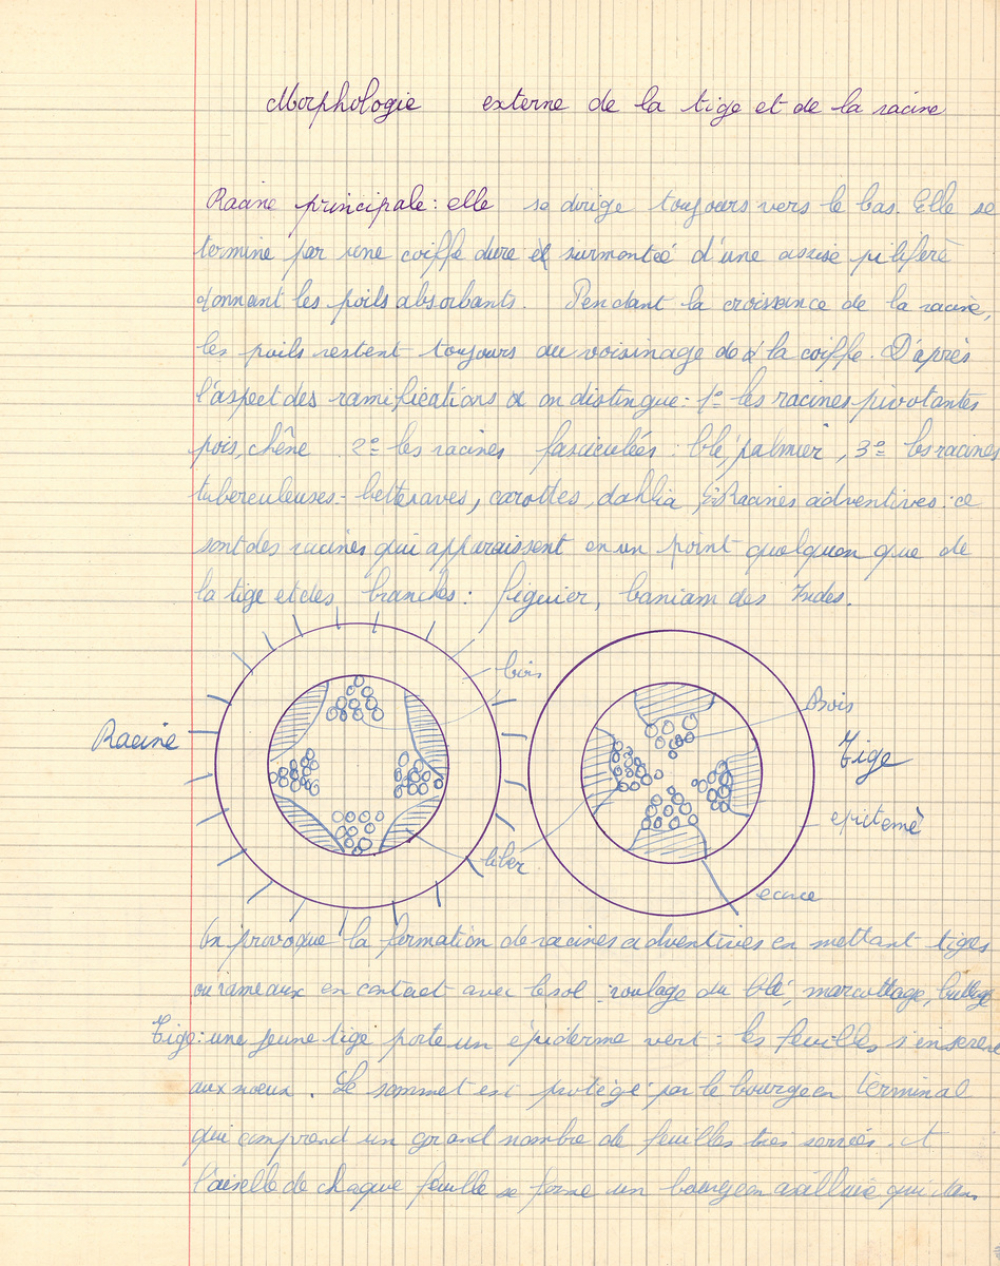 Morphologie externe de la tige et de la racine
Racine principale : elle se dirige toujours vers le bas. Elle se
termine par une coiffe dure et surmontée d'une assise pilifère
donnant les poils absorbants. Pendant la croissance de la racine,
les poils restent toujours au voisinage de la coiffe. D'après
l'aspect des ramifications on distingue : 1º les racines pivotantes
pois, chêne 2º les racines fasciculées : blé, palmier, 3º les racines
tuberculeuses - betteraves, carottes, dahlia Racines adventives : ce
sont des racines qui apparaissent en un point quelquon que de
la tige et des branches : figuier, baniam des Indes.
bois
Racine
Bois
Tige
liber
ecorce
On provoque la formation de racines adventives en mettant tiges
ou rameaux en contact avec le sol : roulage du blé, marcottage,
Tige : une jeune tige porte un épiderme vert : les feuilles s'insere
aux noeux. Le sommet est protégé par le bourgeon terminal
qui comprend un grand nombre de feuilles très serrées. A
l'aiselle de chaque feuille se forme un bourgeon axillaire qui